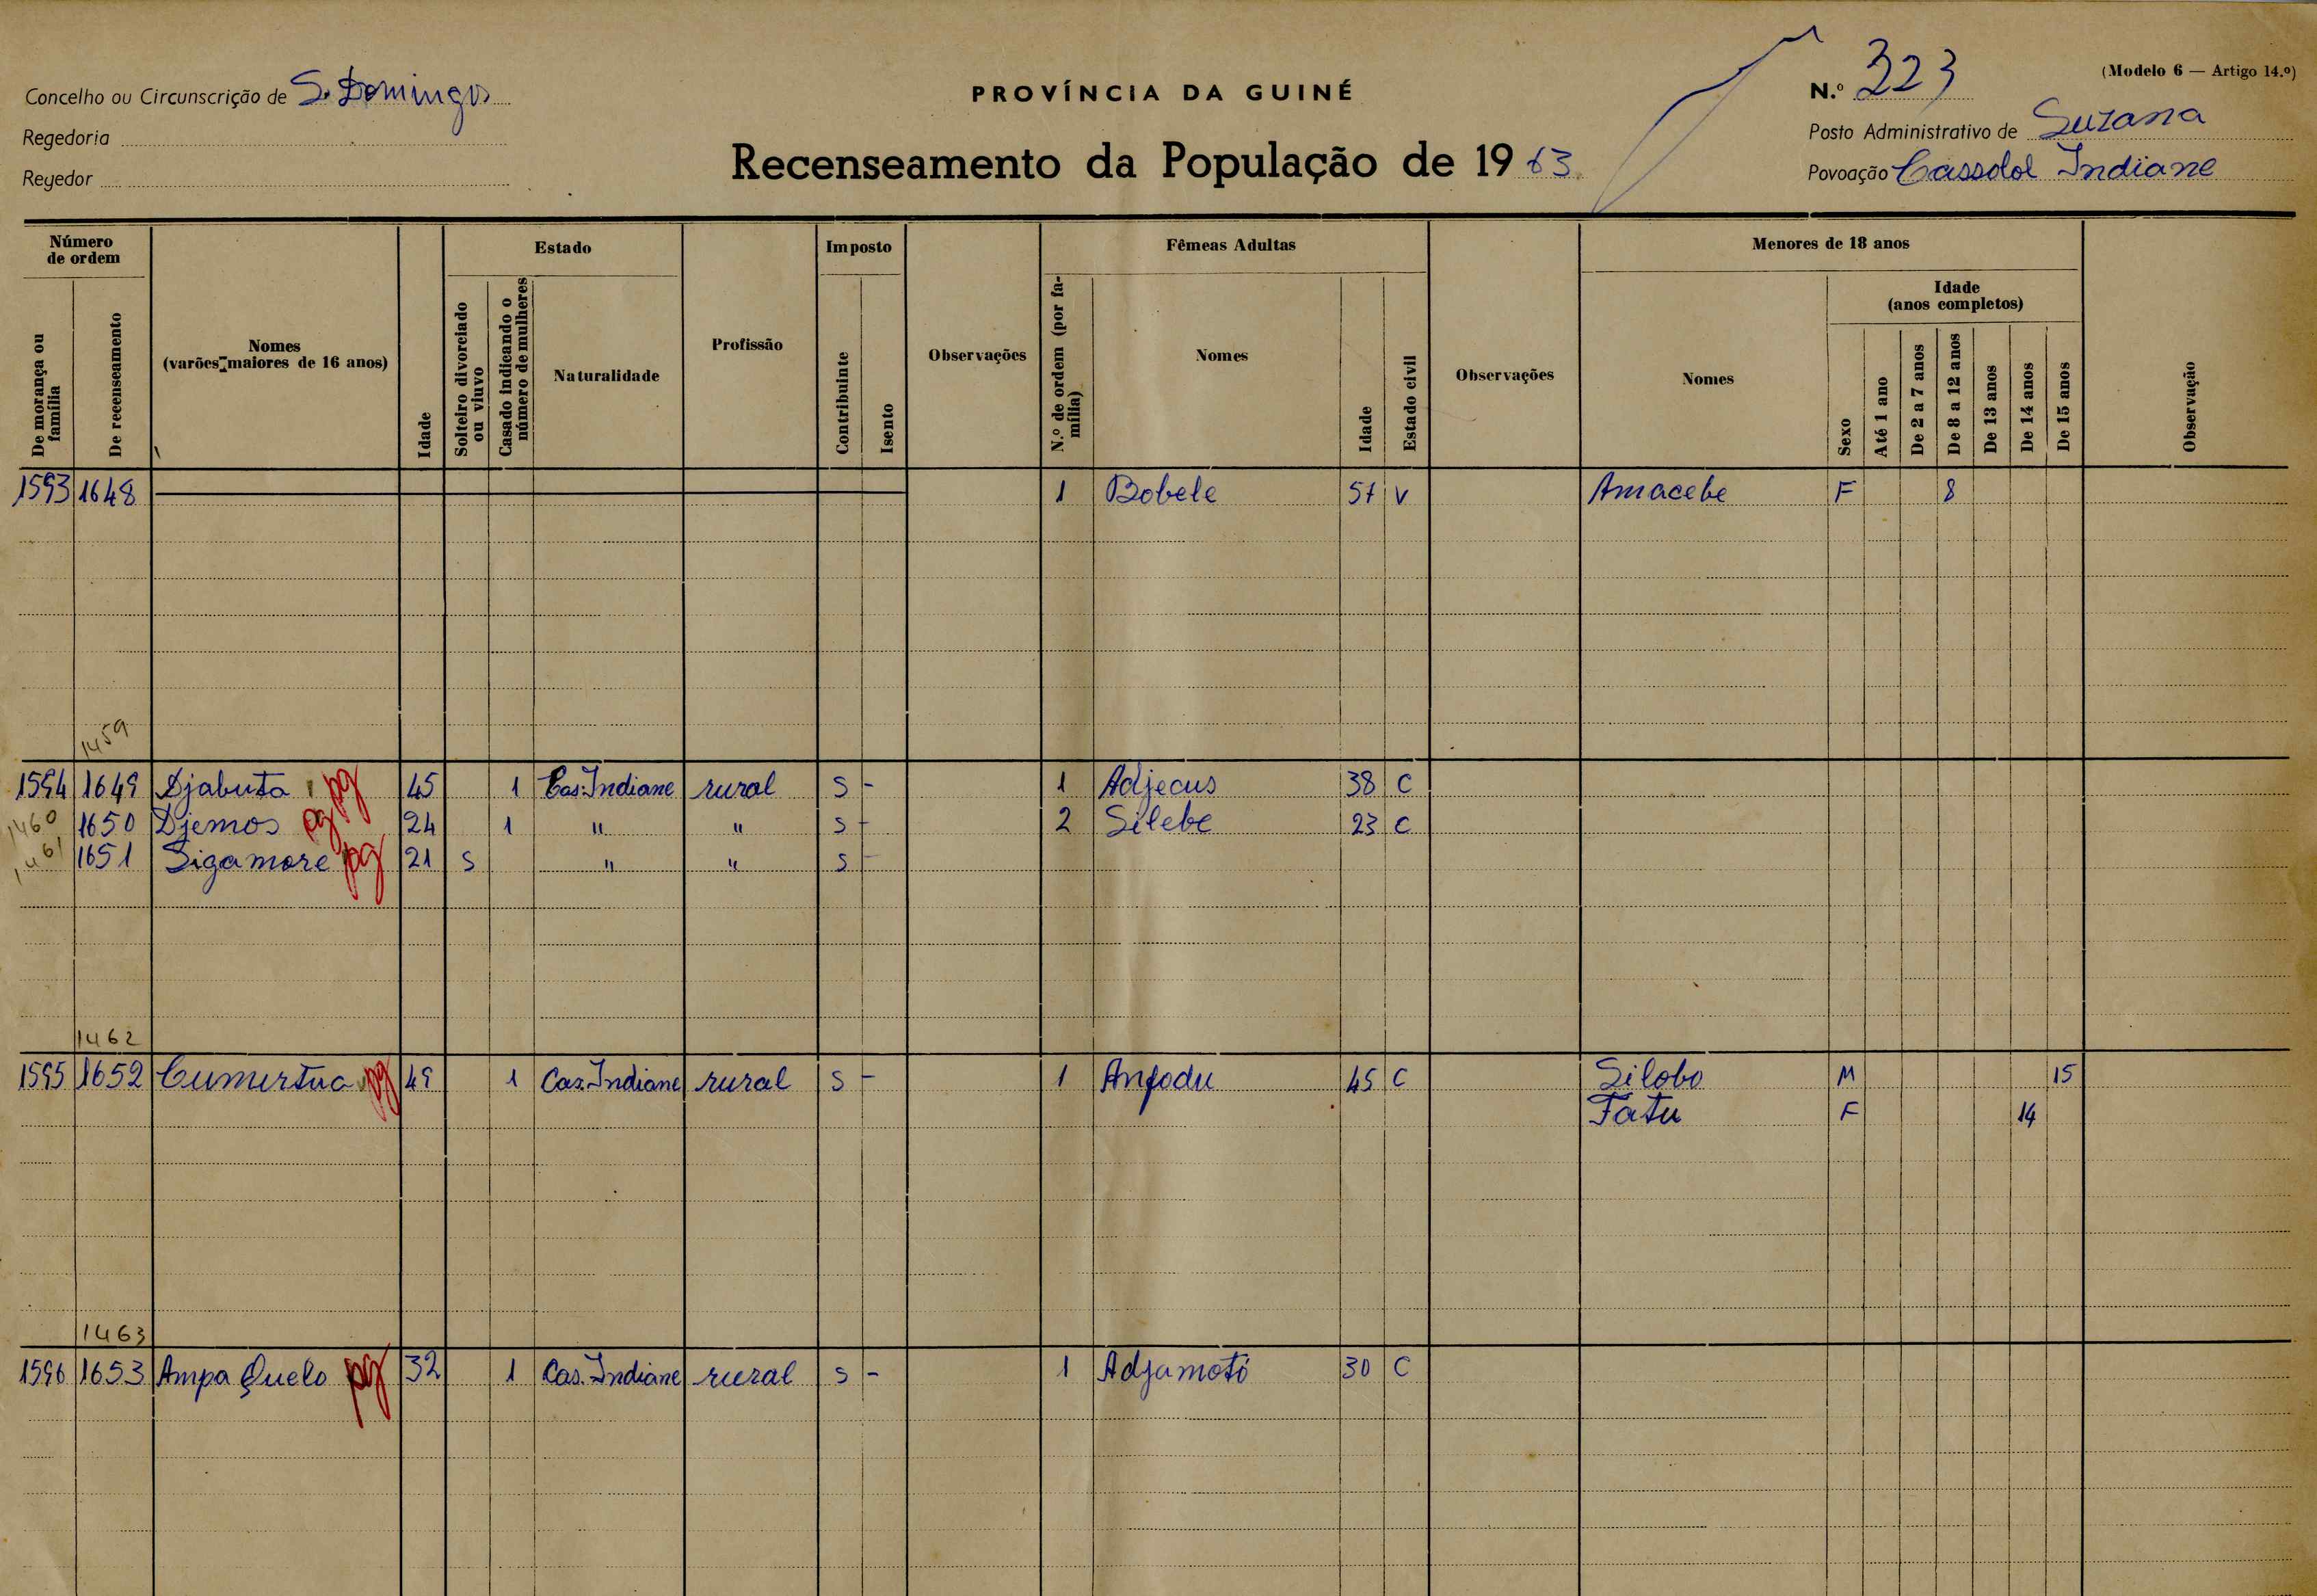 Concelho ou Circunscrição de S. Domingos
Regedoria
Regedor
PROVÍNCIA DA GUINÉ
Recenseamento da População de 19 63
(Modelo 6 — Artigo 14.º)
N.º 323
Posto Administrativo de Suzana
Povoação Cassolol Indiane
Número de ordem
De morança ou família
De recenseamento
Nomes
(varões maiores de 16 anos)
Idade
Estado
Solteiro divorciado ou viuvo
Casado indicando o número de mulheres
Naturalidade
Profissão
Imposto
Contribuinte
Isento
Observações
Fêmeas Adultas
N.º de ordem (por família)
Nomes
Idade
Estado civil
Observações
Menores de 18 anos
Nomes
Sexo
Idade
(anos completos)
Até 1 ano
De 2 a 7 anos
De 8 a 12 anos
De 13 anos
De 14 anos
De 15 anos
Observação
1593 1648 1 Bobele 57 V Amacebe F 8
1459
1594 1649 Djabuta pg 45 1 Cas. Indiane rural S - 1 Adjecus 38 C
1460 1650 Djemos pg 24 1 " " S - 2 Silebe 23 C
1461 1651 Sigamore pg 21 S " " S -
1462
1595 1652 Cumertua pg 49 1 Cas. Indiane rural S - 1 Anfodu 45 C Silobo M 15
Fatu F 14
1463
1596 1653 Ampa Quelo pg 32 1 Cas. Indiane rural S - 1 Adjamoti 30 C